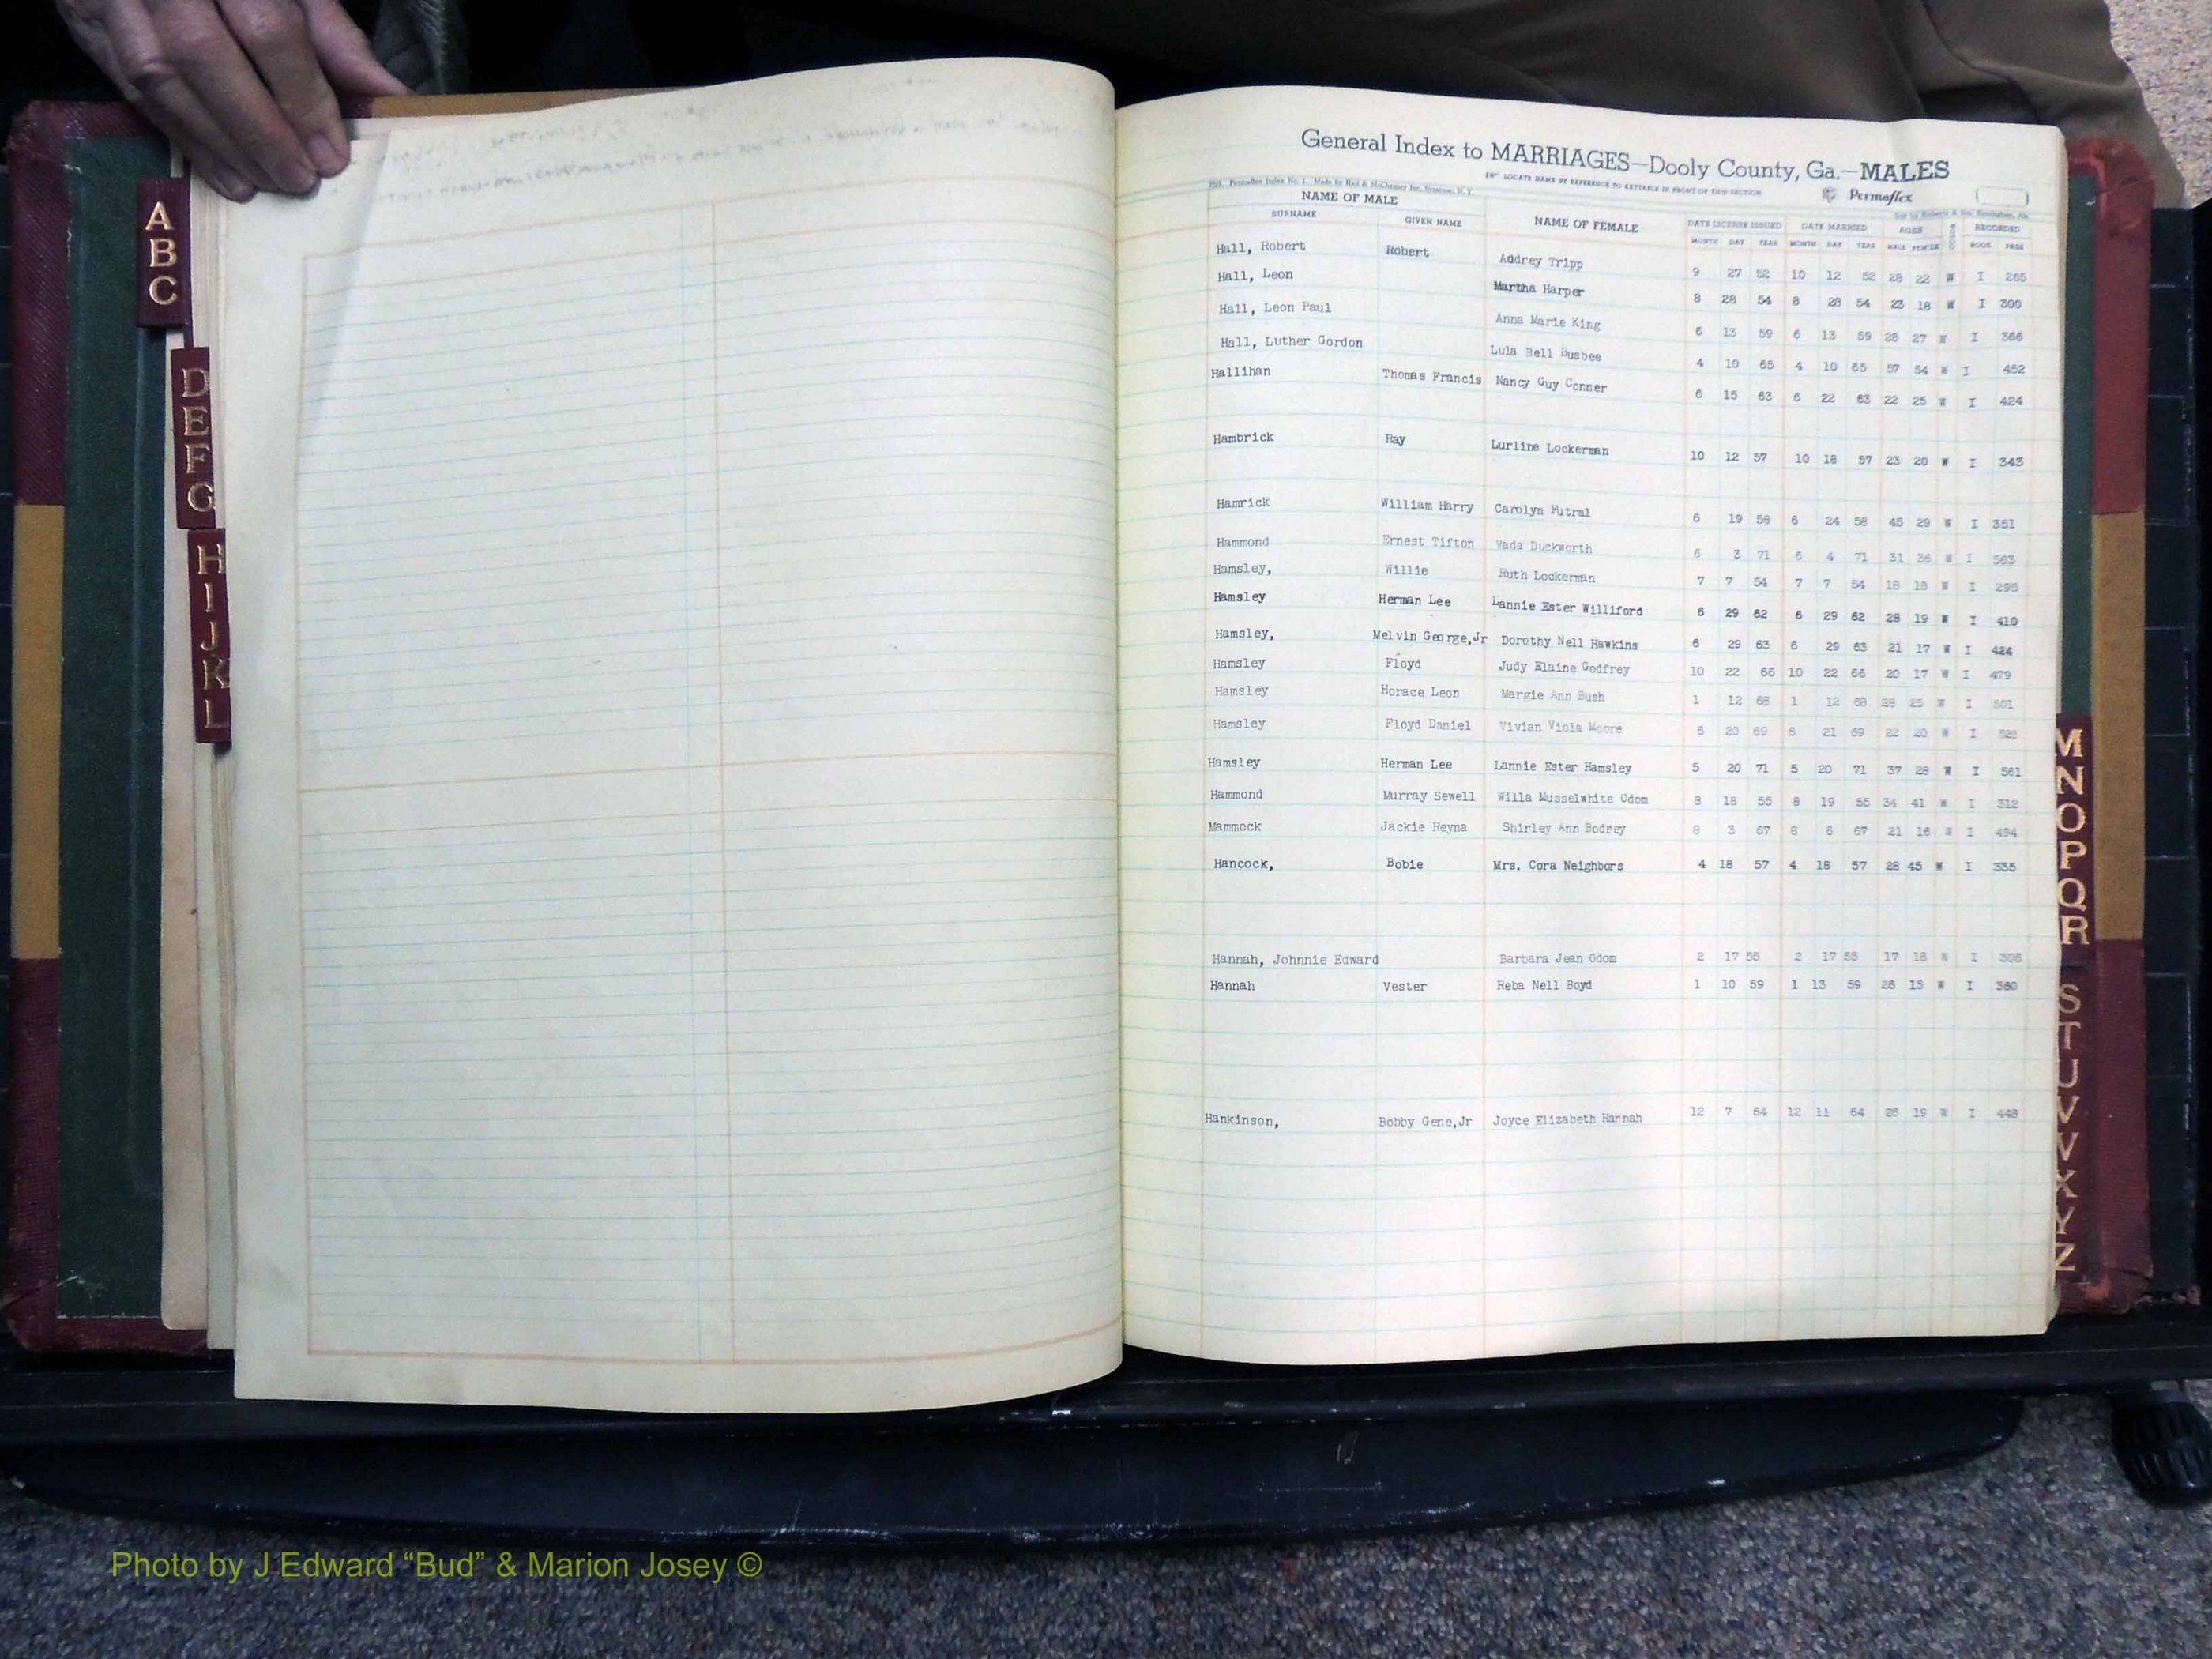 A
B
C
D
E
F
G
H
I
J
K
L
General Index to MARRIAGES—Dooly County, Ga.—MALES
LOCATE NAME BY REFERENCE TO KEYTABLE IN FRONT OF THIS SECTION
Permaflex
NAME OF MALE
SURNAME GIVEN NAME NAME OF FEMALE DATE LICENSE ISSUED DATE MARRIED AGES COLOR RECORDED
MONTH DAY YEAR MONTH DAY YEAR MALE FEM'LE BOOK PAGE
Hall, Robert Robert Audrey Tripp 9 27 52 10 12 52 28 22 W I 265
Hall, Leon Martha Harper 8 28 54 8 28 54 23 18 W I 300
Hall, Leon Paul Anna Marie King 6 13 59 6 13 59 28 27 W I 366
Hall, Luther Gordon Lula Bell Busbee 4 10 65 4 10 65 57 54 W I 452
Hallihan Thomas Francis Nancy Guy Conner 6 15 63 6 22 63 22 25 W I 424
Hambrick Ray Lurline Lockerman 10 12 57 10 18 57 23 20 W I 343
Hamrick William Harry Carolyn Futral 6 19 58 6 24 58 45 29 W I 351
Hammond Ernest Tifton Vada Duckworth 6 3 71 6 4 71 31 36 W I 563
Hamsley, Willie Ruth Lockerman 7 7 54 7 7 54 18 18 W I 295
Hamsley Herman Lee Lannie Ester Williford 6 29 62 6 29 62 28 19 W I 410
Hamsley, Melvin George,Jr Dorothy Nell Hawkins 6 29 63 6 29 63 21 17 W I 424
Hamsley Floyd Judy Elaine Godfrey 10 22 66 10 22 66 20 17 W I 479
Hamsley Horace Leon Margie Ann Bush 1 12 68 1 12 68 28 25 W I 501
Hamsley Floyd Daniel Vivian Viola Moore 6 20 69 6 21 69 22 20 W I
Hamsley Herman Lee Lannie Ester Hamsley 5 20 71 5 20 71 37 28 W I 561
Hammond Murray Sewell Willa Musselwhite Odom 8 18 55 8 19 55 34 41 W I 312
Mammock Jackie Reyna Shirley Ann Bodrey 8 3 67 8 6 67 21 16 W I 494
Hancock, Bobie Mrs. Cora Neighbors 4 18 57 4 18 57 28 45 W I 335
Hannah, Johnnie Edward Barbara Jean Odom 2 17 55 2 17 55 17 18 W I 306
Hannah Vester Reba Nell Boyd 1 10 59 1 13 59 26 15 W I 360
Hankinson, Bobby Gene,Jr Joyce Elizabeth Hannah 12 7 64 12 11 64 26 19 W I 448
M
N
O
P
Q
R
S
T
U
V
W
X
Y
Z
Photo by J Edward “Bud” & Marion Josey ©